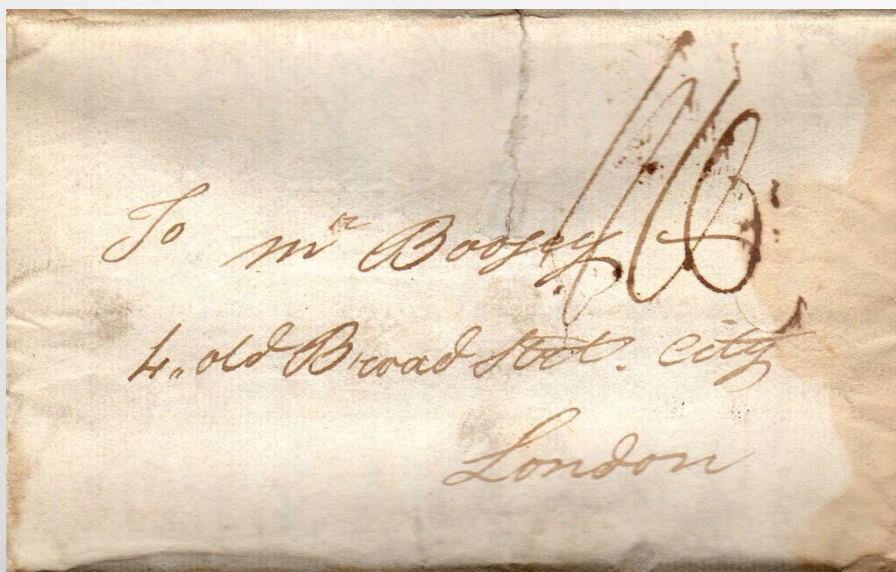 To Mr Boosey
4 old Broad Stt. City
London